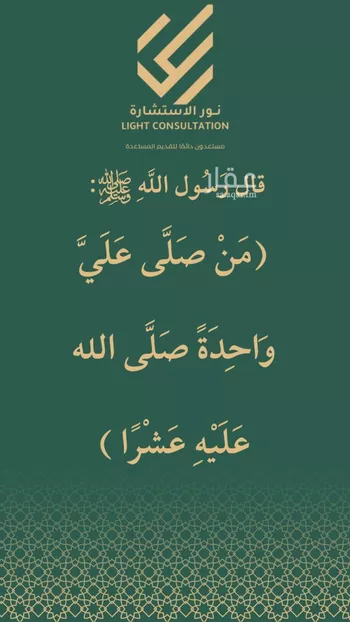 نور الاستشارة
LIGHT CONSULTATION
مستعدون دائمًا لتقديم المساعدة
قال رَسُول اللَّهِ ﷺ:
عقار
sa.aqar.fm
(مَنْ صَلَّى عَلَيَّ
وَاحِدَةً صَلَّى الله
عَلَيْهِ عَشْرًا )